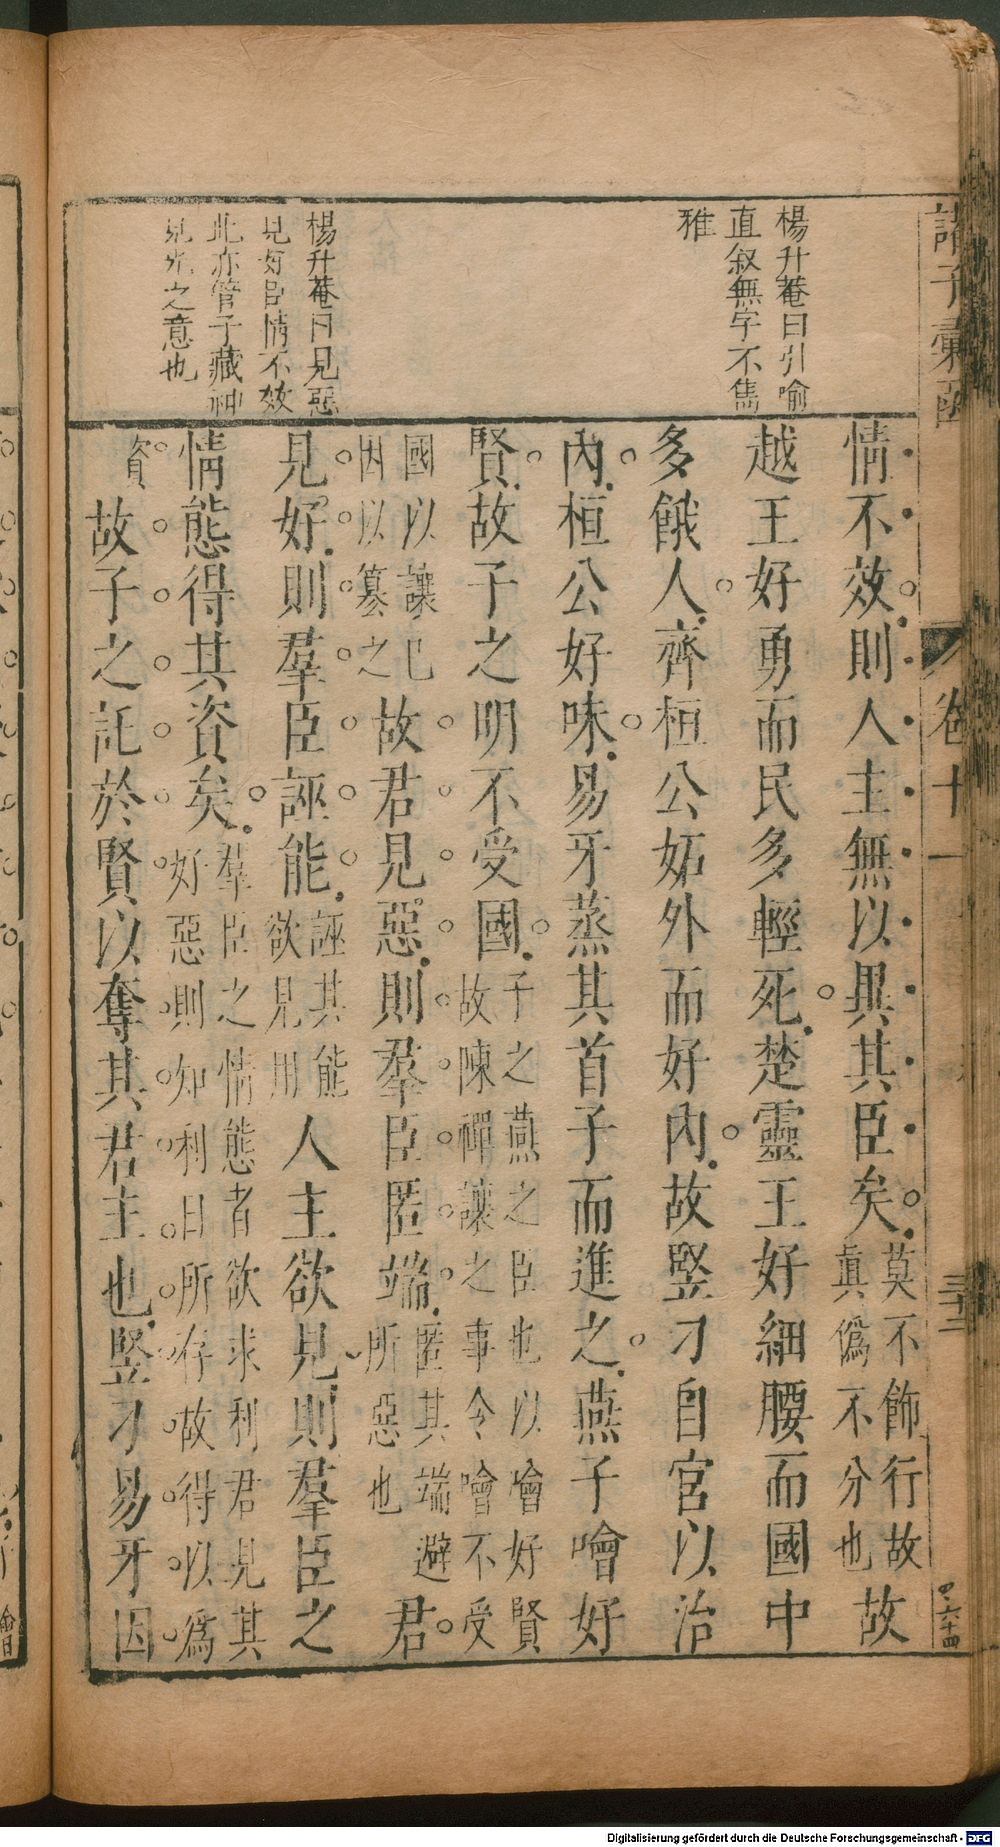 諸子彙函
卷十一
三十二
四、六十四
楊升菴曰引喻
直叙無字不雋
雅
楊升菴曰見惡
見好臣情不效
此亦管子藏神
之意也
情不效則人主無以異其臣矣莫不飾行故
眞僞不分也故
越王好勇而民多輕死楚靈王好細腰而國中
多餓人齊桓公妬外而好內故竪刁自宮以治
內桓公好味易牙蒸其首子而進之燕子噲好
賢故子之明不受國子之燕之臣也以噲好賢
故陳禪讓之事令噲不受
國以讓已
因以簒之故君見惡則羣臣匿端匿其端避
所惡也君
見好則羣臣誣能誣其能
欲見用人主欲見則羣臣之
情態得其資矣羣臣之情態者欲求利君見其
好惡則知利日所存故得以爲
資故子之託於賢以奪其君主也竪刁易牙因
Digitalisierung gefördert durch die Deutsche Forschungsgemeinschaft - DFG